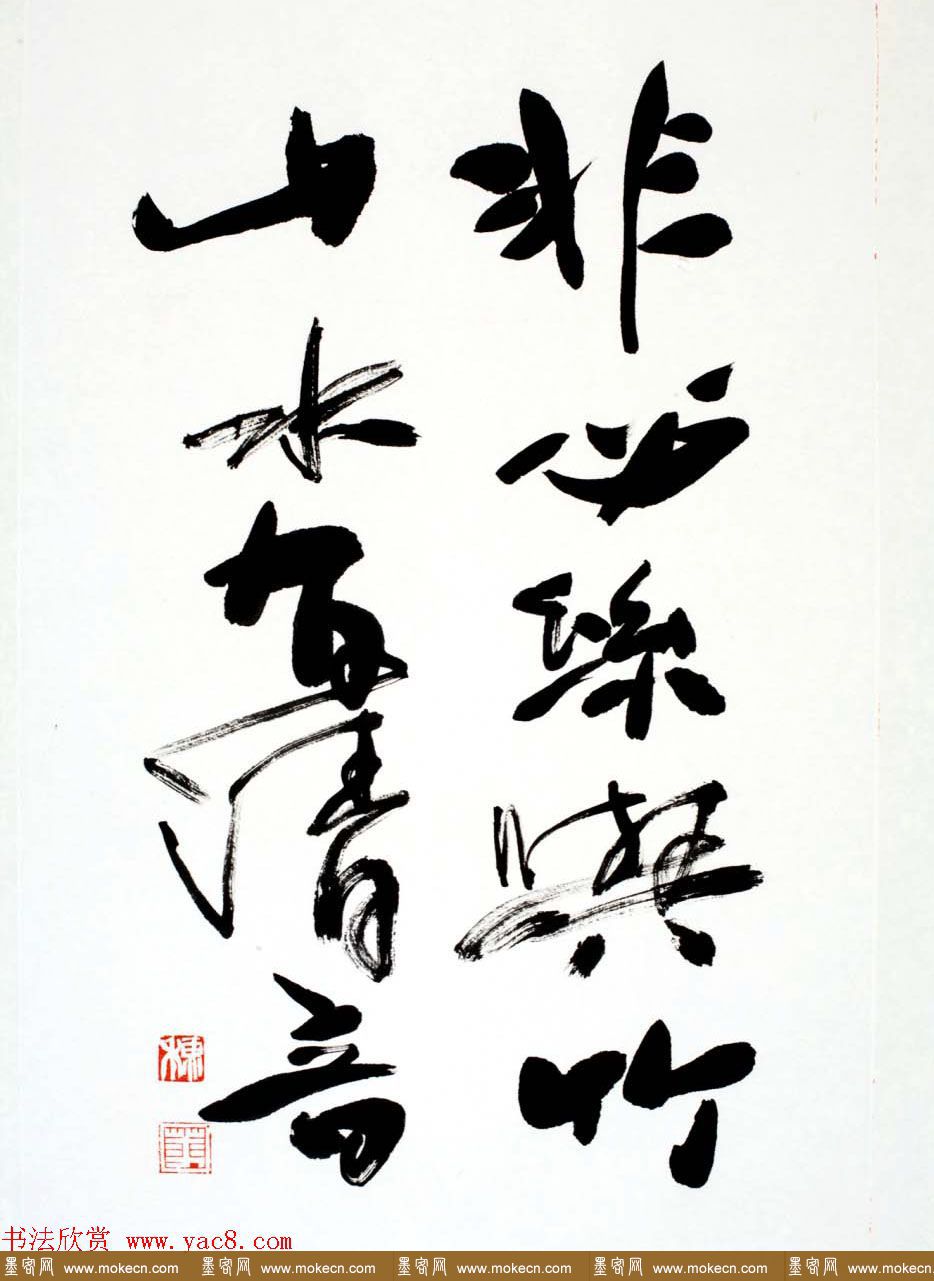 非必絲與竹
山水有清音
书法欣赏 www.yac8.com
墨客网 www.mokecn.com 墨客网 www.mokecn.com 墨客网 www.mokecn.com 墨客网 www.mokecn.com 墨客网 www.mokecn.com